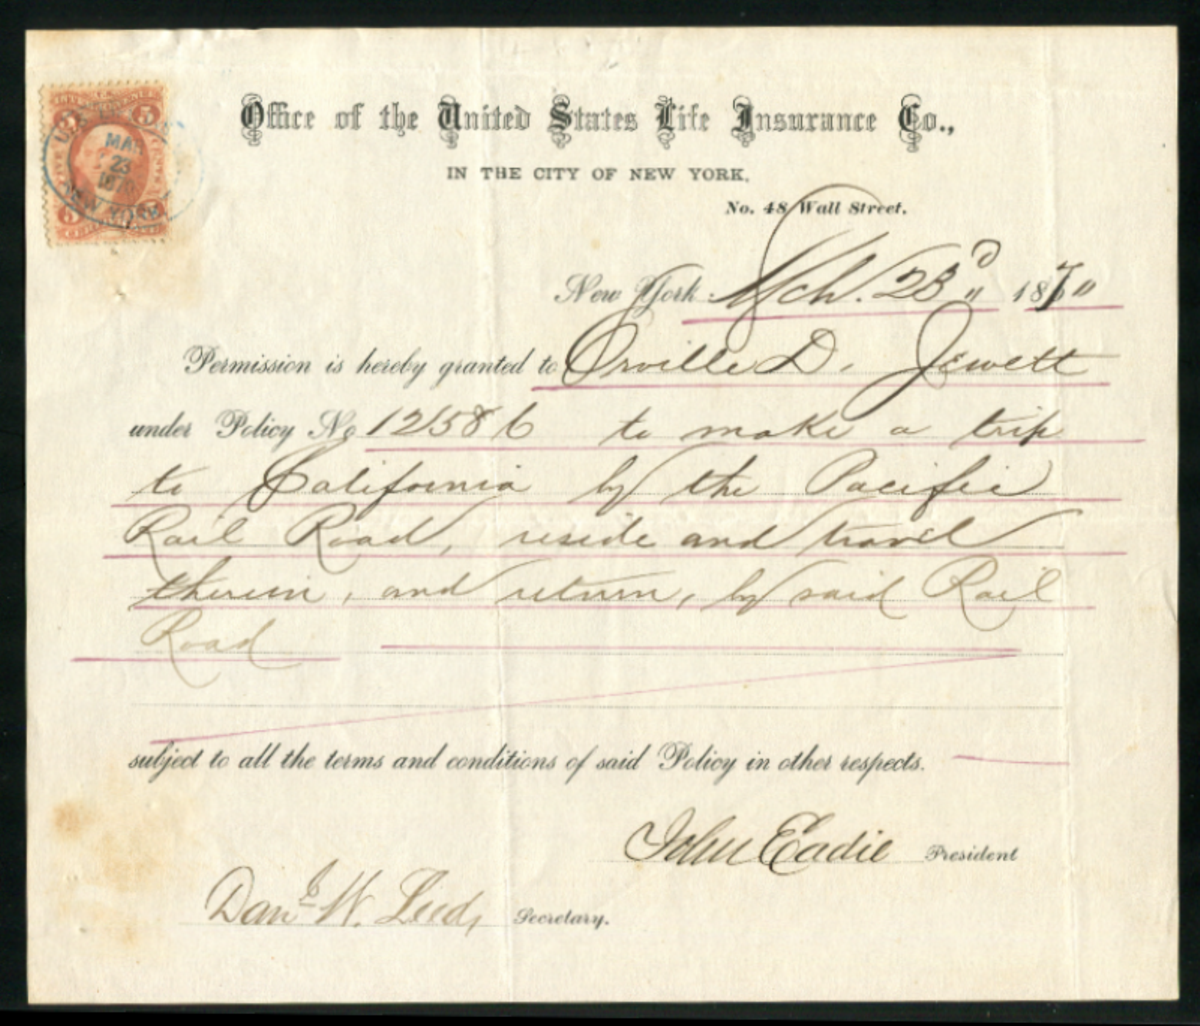 5 5
MAR
23
1870
NEW YORK
5 5
CERTIFICATE
Office of the United States Life Insurance Co.,
IN THE CITY OF NEW YORK,
No. 48 Wall Street.
New York Mch. 23d 1870
Permission is hereby granted to Orville D. Jewett
under Policy No 12586 to make a trip
to California by the Pacific
Rail Road, reside and travel
therein, and return, by said Rail
Road
subject to all the terms and conditions of said Policy in other respects.
John Eadie President
Danl W. Leeds Secretary.